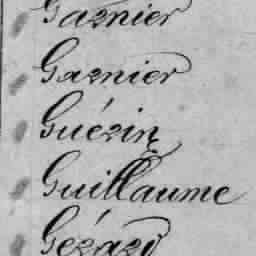 Garnier
Garnier
Guérin
Guillaume
Gérard